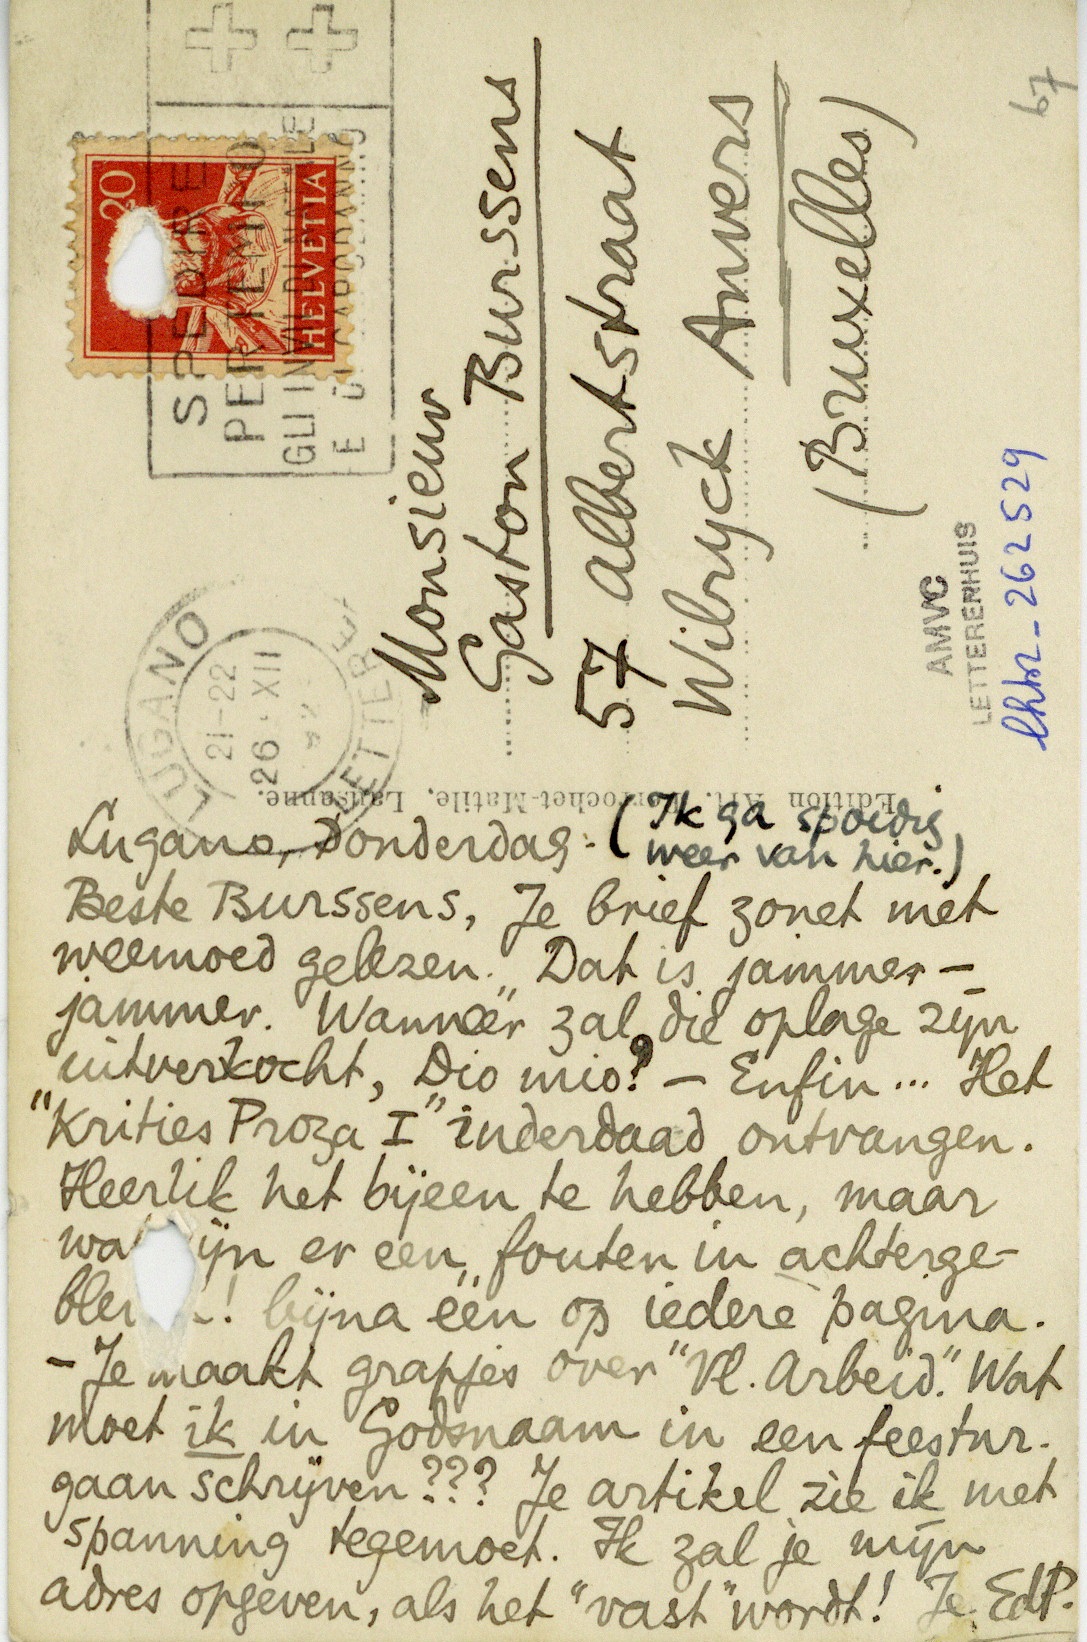 20
HELVETIA
SPEDIRE
PER TEMPO
GLI INVII DI NATALE
E DI CAPODANNO
LUGANO
21-22
26. XII
LETTERE
Monsieur
Gaston Burssens
57 Albertstraat
Wilryck Anvers
(Bruxelles)
67
AMVC
LETTERENHUIS
lhbr-262529
Edition Art. Perrochet-Matile, Lausanne.
Lugano, Donderdag. (Ik ga spoedig
weer van hier.)
Beste Burssens, Je brief zonet met
weemoed gelezen. Dat is jammer –
jammer. Wanneer zal die oplage zijn
uitverkocht, Dio mio? – Enfin... Het
"Krities Proza I" inderdaad ontvangen.
Heerlik het bijeen te hebben, maar
wat zijn er een fouten in achterge-
bleven! bijna één op iedere pagina.
– Je maakt grapjes over "Vl. Arbeid." Wat
moet ik in Godsnaam in een feestnr.
gaan schrijven??? Je artikel zie ik met
spanning tegemoet. Ik zal je mijn
adres opgeven, als het "vast" wordt! Je EdP.